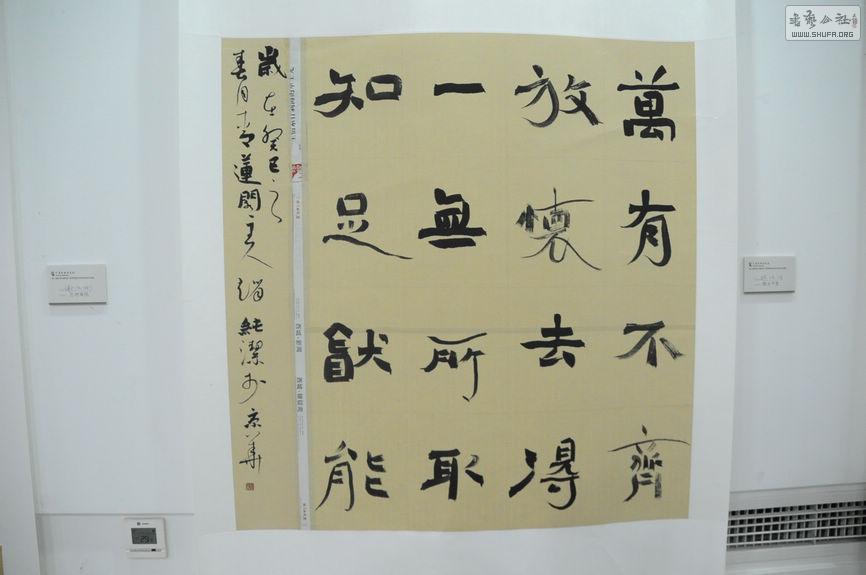 萬有不齊
放懷去得
一無所取
知足猷能
歲在癸巳之
春月青蓮閣主人趙純潔於京華
書藝公社
WWW.SHUFA.ORG